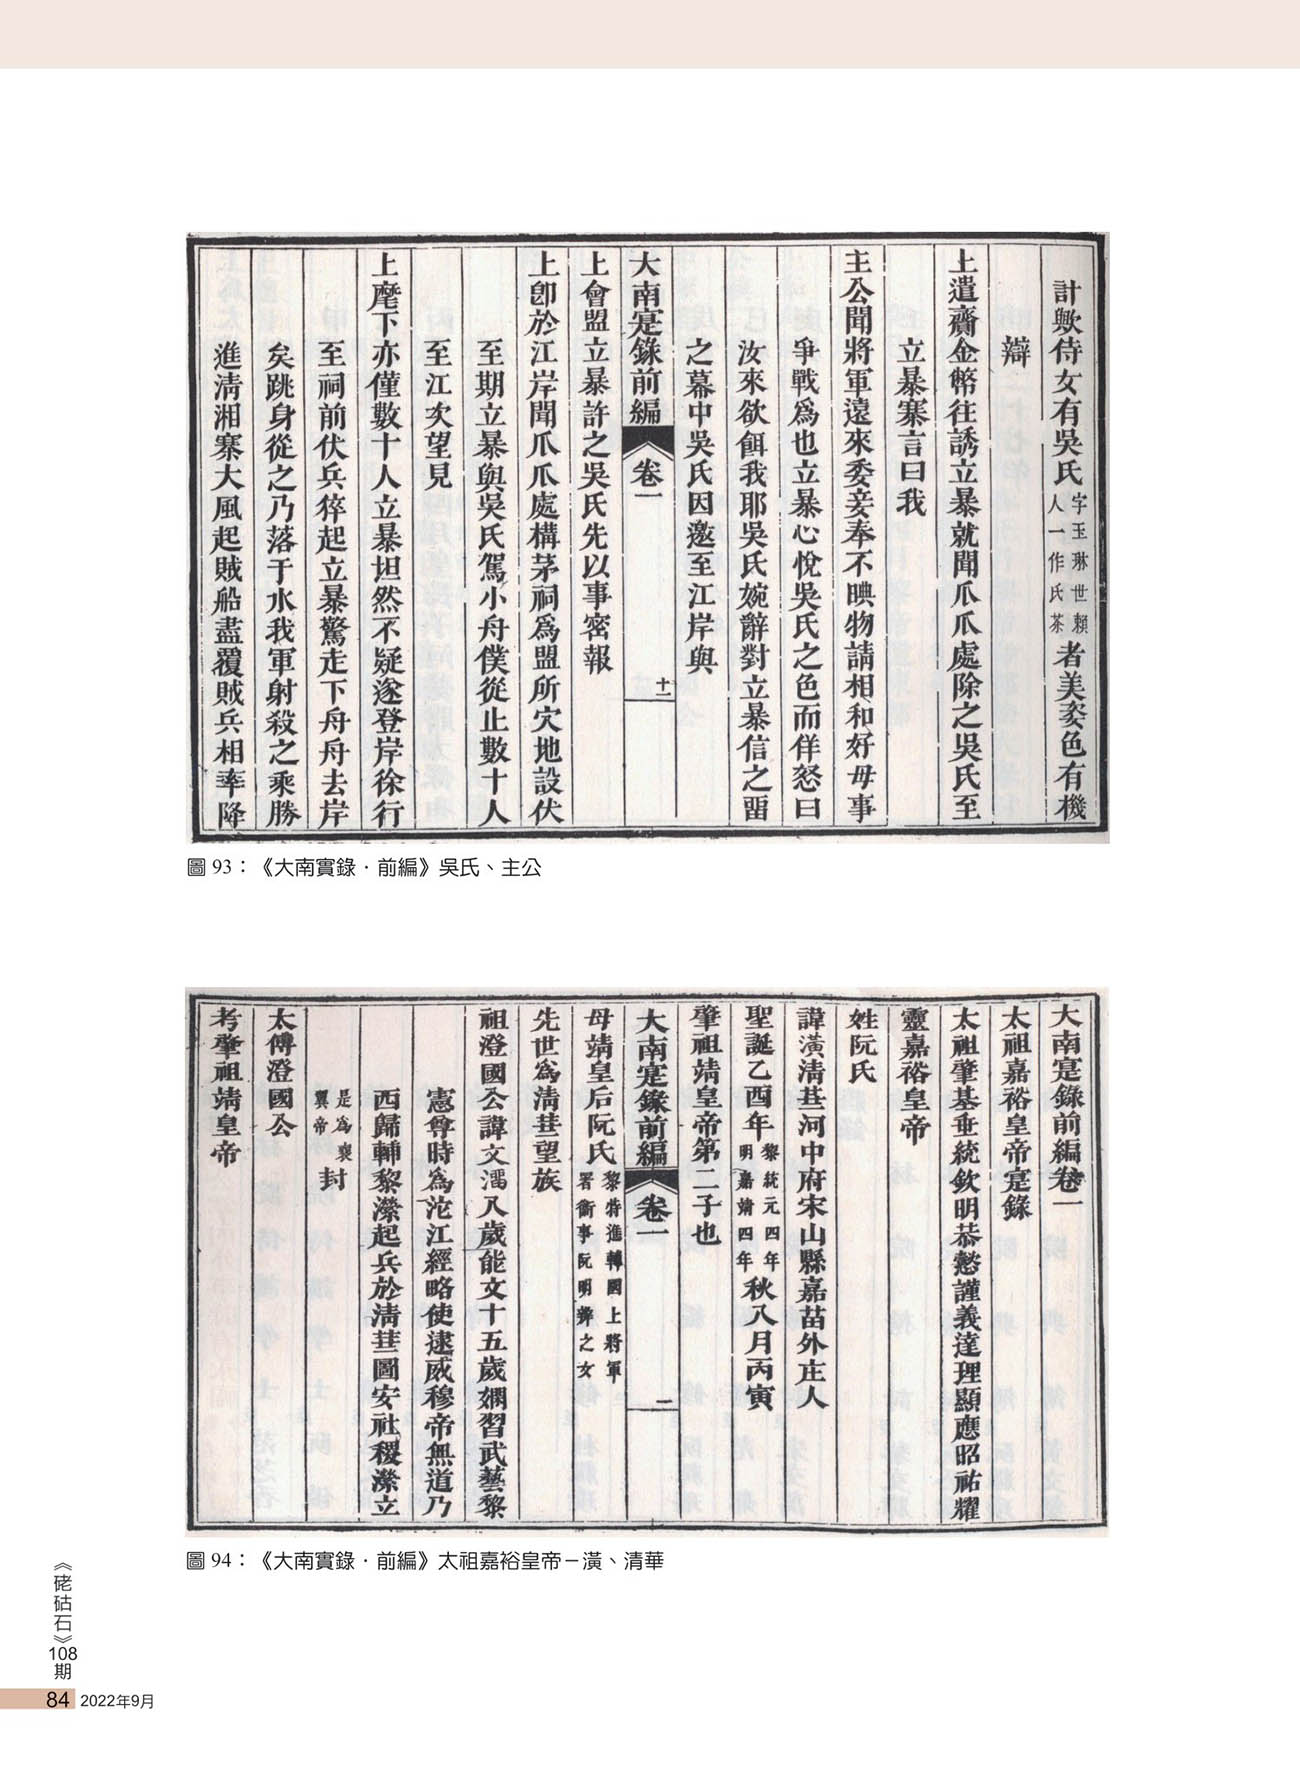 計歟侍女有吳氏字玉琳世賴人一作氏茶者美姿色有機
辯
上遣齎金幣往誘立暴就聞爪爪處除之吳氏至
立暴寨言曰我
主公聞將軍遠來委妾奉不腆物請相和好毋事
爭戰爲也立暴心悅吳氏之色而佯怒曰
汝來欲餌我耶吳氏婉辭對立暴信之畱
之幕中吳氏因邀至江岸與
大南寔錄前編 卷一 十二
上會盟立暴許之吳氏先以事密報
上卽於江岸聞爪爪處構茅祠爲盟所穴地設伏
至期立暴與吳氏駕小舟僕從止數十人
至江次望見
上麾下亦僅數十人立暴坦然不疑遂登岸徐行
至祠前伏兵猝起立暴驚走下舟舟去岸
矣跳身從之乃落于水我軍射殺之乘勝
進淸湘寨大風起賊船盡覆賊兵相率降
圖 93：《大南實錄．前編》吳氏、主公
大南寔錄前編卷一
太祖嘉裕皇帝寔錄
太祖肇基垂統欽明恭懿謹義達理顯應昭祐耀
靈嘉裕皇帝
姓阮氏
諱潢淸葟河中府宋山縣嘉苗外庄人
聖誕乙酉年黎統元四年明嘉靖四年秋八月丙寅
肇祖靖皇帝第二子也
大南寔錄前編 卷一 二
母靖皇后阮氏黎特進輔國上將軍署衛事阮明辨之女
先世爲淸葟望族
祖澄國公諱文濡八歲能文十五歲嫻習武藝黎
憲尊時爲沱江經略使逮威穆帝無道乃
西歸輔黎瀠起兵於淸葟圖安社稷瀠立
是爲襄翼帝封
太傅澄國公
考肇祖靖皇帝
圖 94：《大南實錄．前編》太祖嘉裕皇帝－潢、清華
《硓𥑮石》108期
84 2022年9月